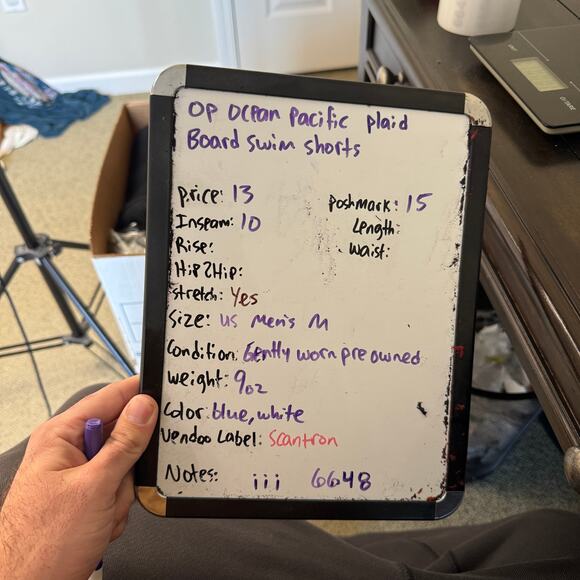 OP Ocean Pacific plaid
Board swim shorts
price: 13
Poshmark: 15
Inseam: 10
Length:
Rise:
Waist:
Hip 2 Hip:
stretch: Yes
Size: US Men's M
Condition: Gently worn pre owned
weight: 9oz
Color: blue, white
Vendoo Label: Scantron
Notes: iii 6648